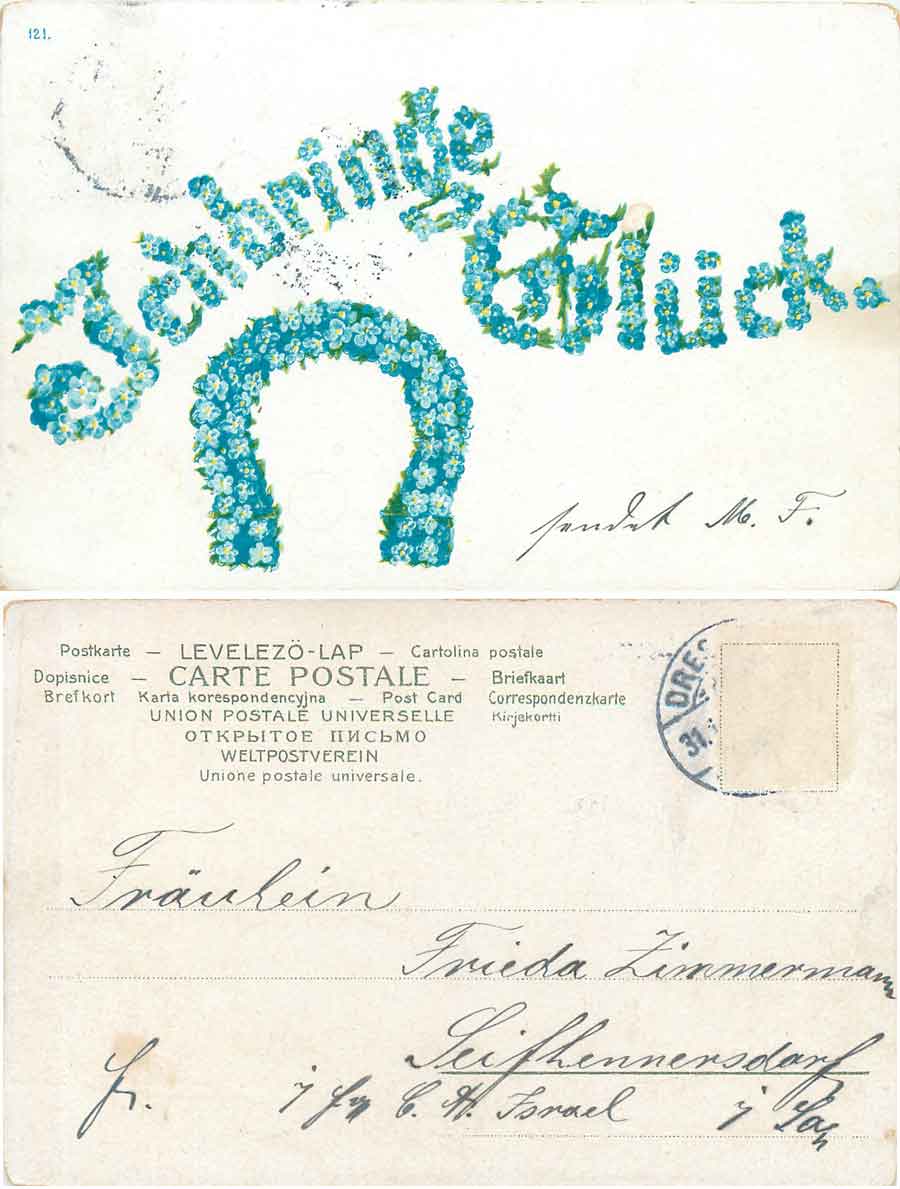 121.
Ich bringe
Glück.
sendet M. F.
Postkarte – LEVELEZÖ-LAP – Cartolina postale
Dopisnice – CARTE POSTALE – Briefkaart
Brefkort Karta korespondencyjna – Post Card Correspondenzkarte
UNION POSTALE UNIVERSELLE Kirjekortti
ОТКРЫТОЕ ПИСЬМО
WELTPOSTVEREIN
Unione postale universale.
DRES
31.
Fräulein
Frieda Zimmermann
Seifhennersdorf
Fr. C. H. Israel i/ Sa